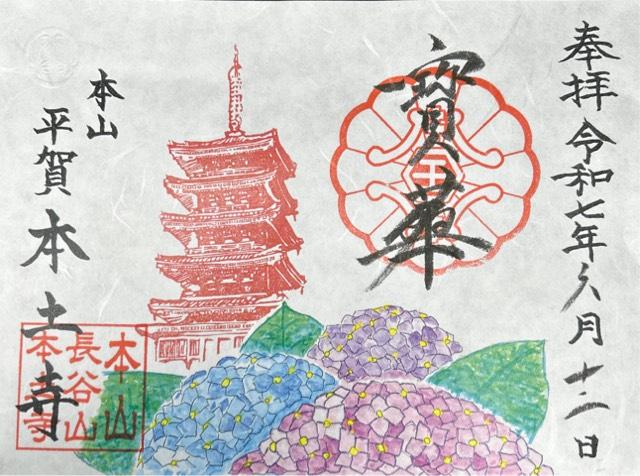 奉拝 令和七年六月十二日
寶華
本山
平賀 本土寺
本山
長谷山
本土寺